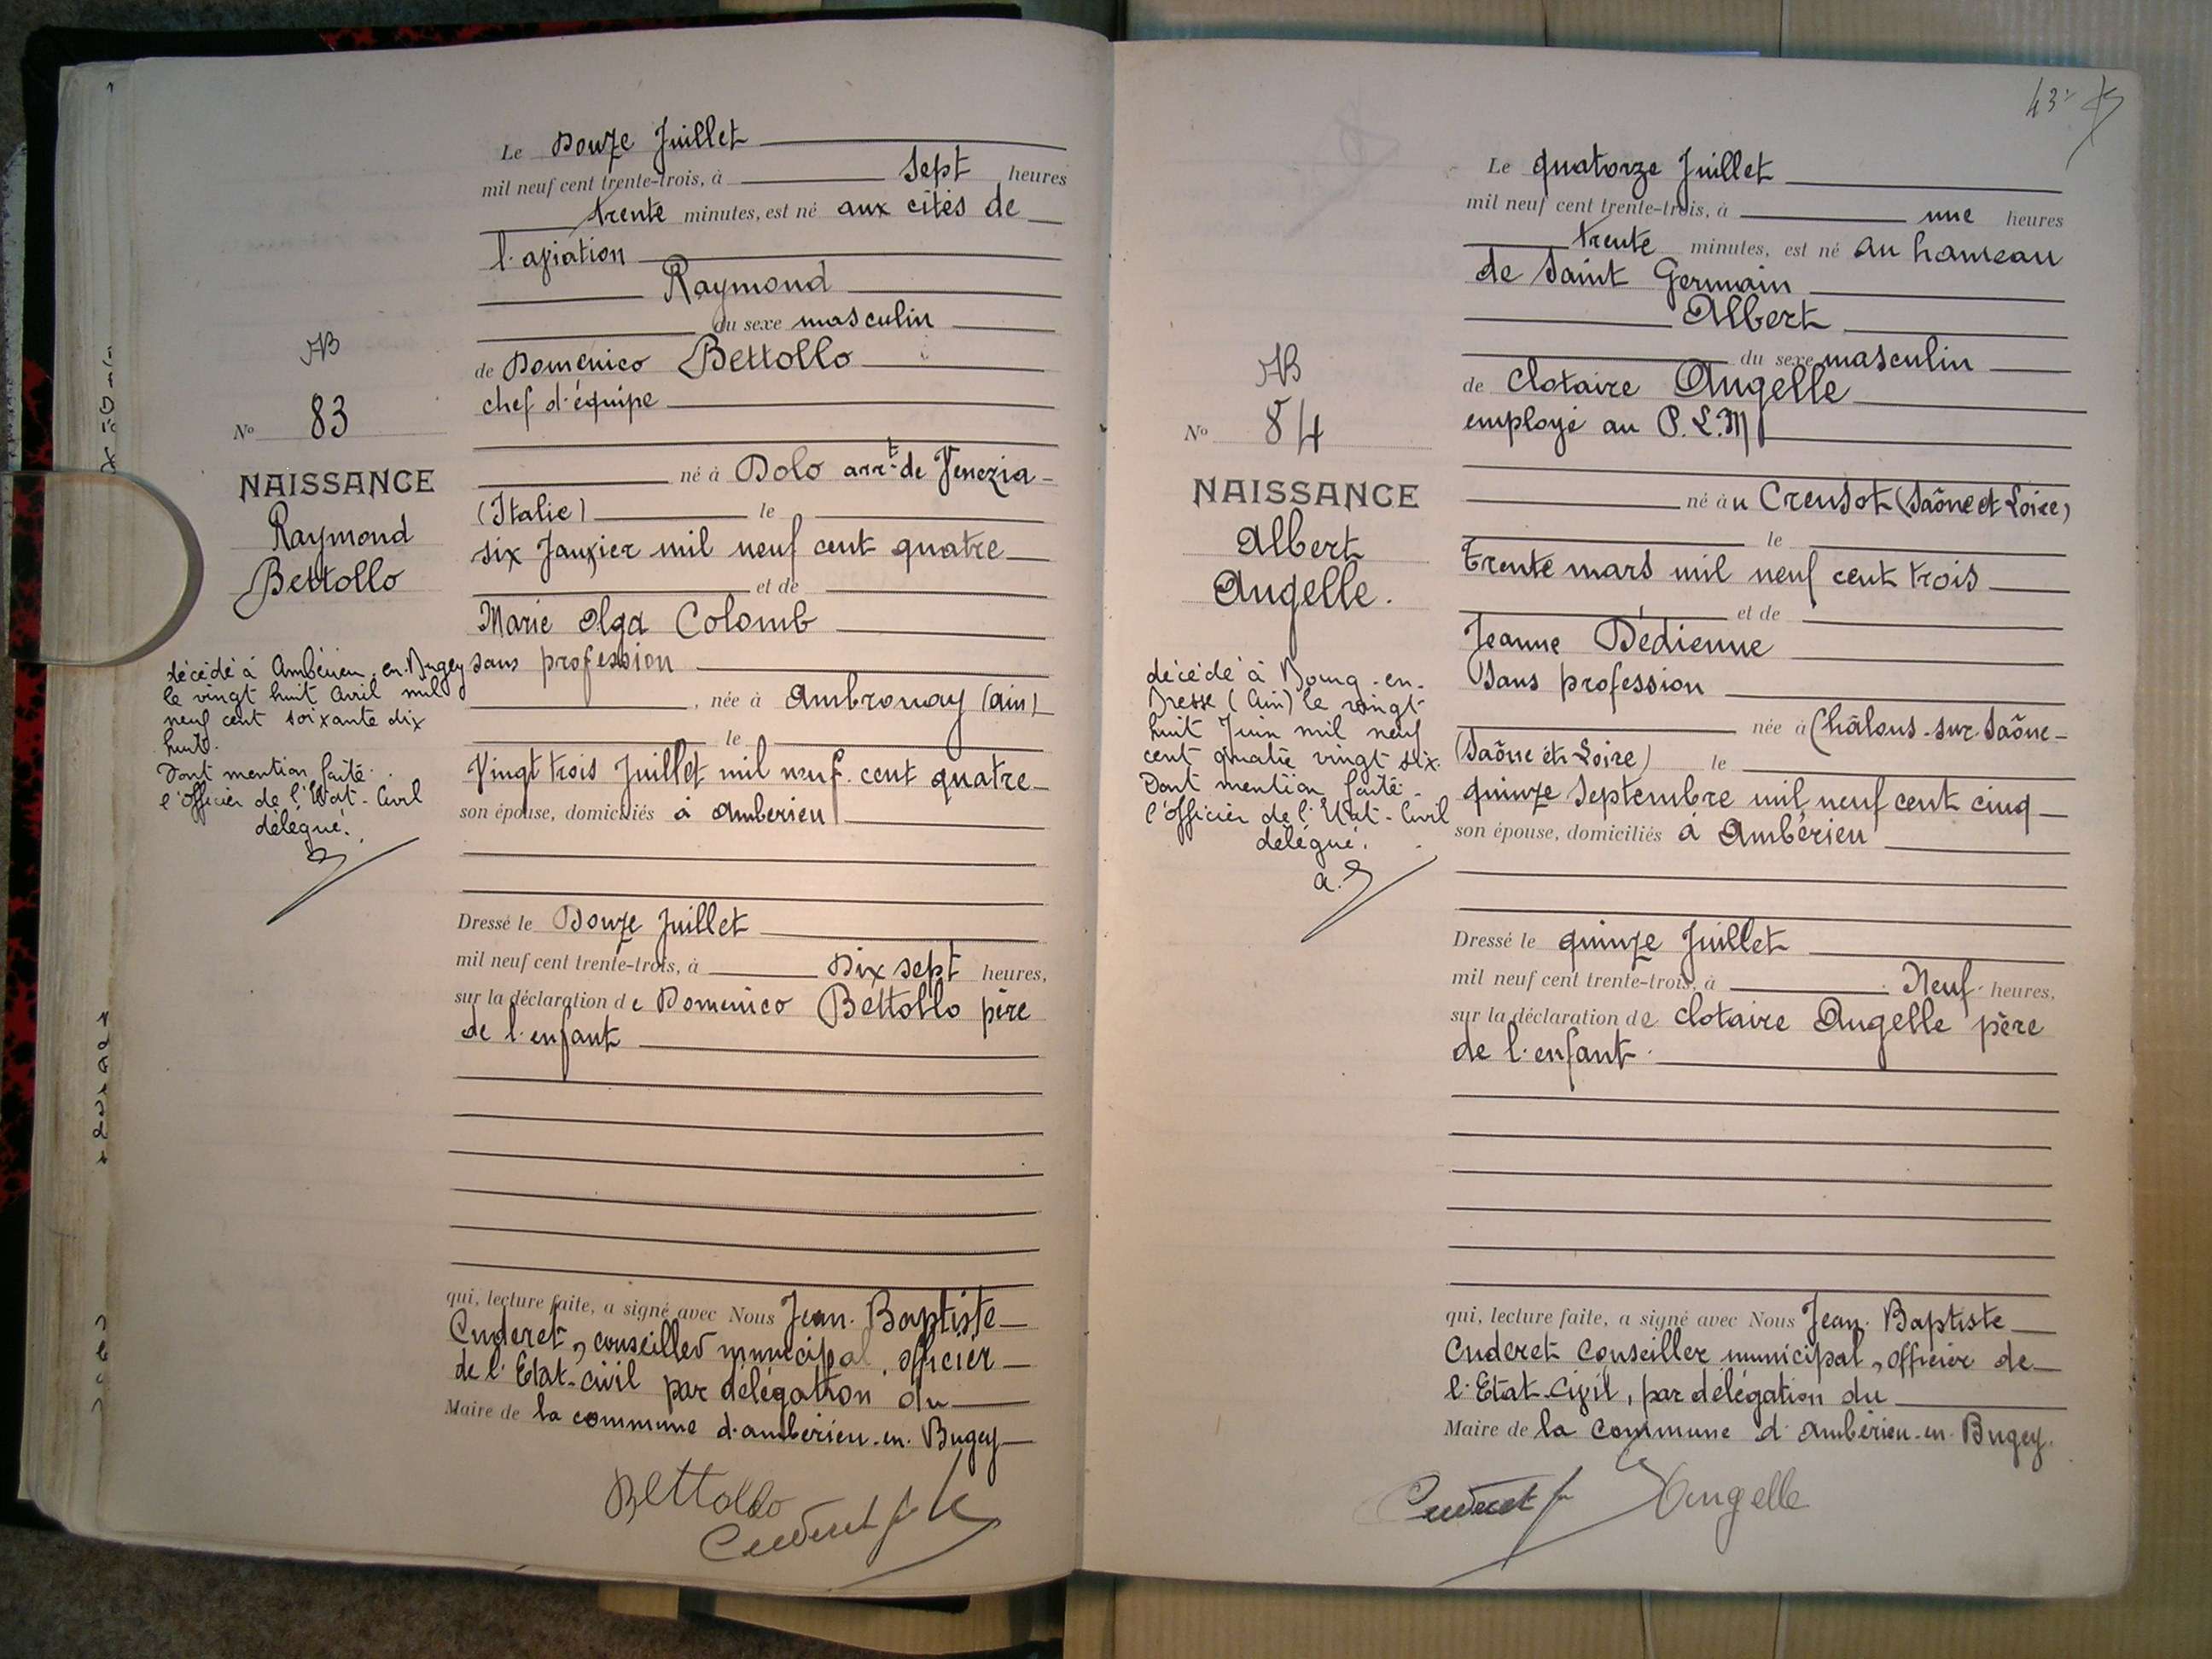 Le Douze Juillet
mil neuf cent trente-trois, à sept heures
trente minutes, est né aux cités de
l'aviation
Raymond
du sexe masculin
de Domenico Bettollo
chef d'équipe
né à Dolo arrt de Venezia
(Italie) le
six Janvier mil neuf cent quatre
et de
Marie Olga Colomb
sans profession
, née à Ambronay (ain)
le
Vingt trois Juillet mil neuf cent quatre
son épouse, domiciliés à Amberieu
Dressé le Douze Juillet
mil neuf cent trente-trois, à Dix sept heures,
sur la déclaration de Domenico Bettollo père
de l'enfant
qui, lecture faite, a signé avec Nous Jean-Baptiste
Cuderet, conseiller municipal, officier
de l'Etat-civil par délégation du
Maire de la commune d'ambérieu-en-Bugey
Bettollo
Cuderet
AB
No 83
NAISSANCE
Raymond
Bettollo
décédé à Ambérieu-en-Bugey
le vingt huit Avril mil
neuf cent soixante dix
huit.
Dont mention faite.
l'officier de l'Etat-Civil
délégué.
43
Le quatorze Juillet
mil neuf cent trente-trois, à une heures
trente minutes, est né au hameau
de Saint Germain
Albert
du sexe masculin
de Clotaire Augelle
employé au P.L.M
né au Creusot (Saône et Loire)
le
trente mars mil neuf cent trois
et de
Jeanne Dédienne
Sans profession
née à Châlons-sur-Saône
(Saône et Loire) le
quinze Septembre mil neuf cent cinq
son épouse, domiciliés à Ambérieu
Dressé le quinze Juillet
mil neuf cent trente-trois, à Neuf heures,
sur la déclaration de Clotaire Augelle père
de l'enfant.
qui, lecture faite, a signé avec Nous Jean-Baptiste
Cuderet Conseiller municipal, officier de
l'Etat-Civil, par délégation du
Maire de la Commune d'Ambérieu-en-Bugey.
Cuderet Augelle
AB
No 84
NAISSANCE
Albert
Augelle.
décédé à Bourg-en-
Bresse (Ain) le vingt
huit Juin mil neuf
cent quatre vingt six.
Dont mention faite.
l'officier de l'Etat-Civil
délégué.